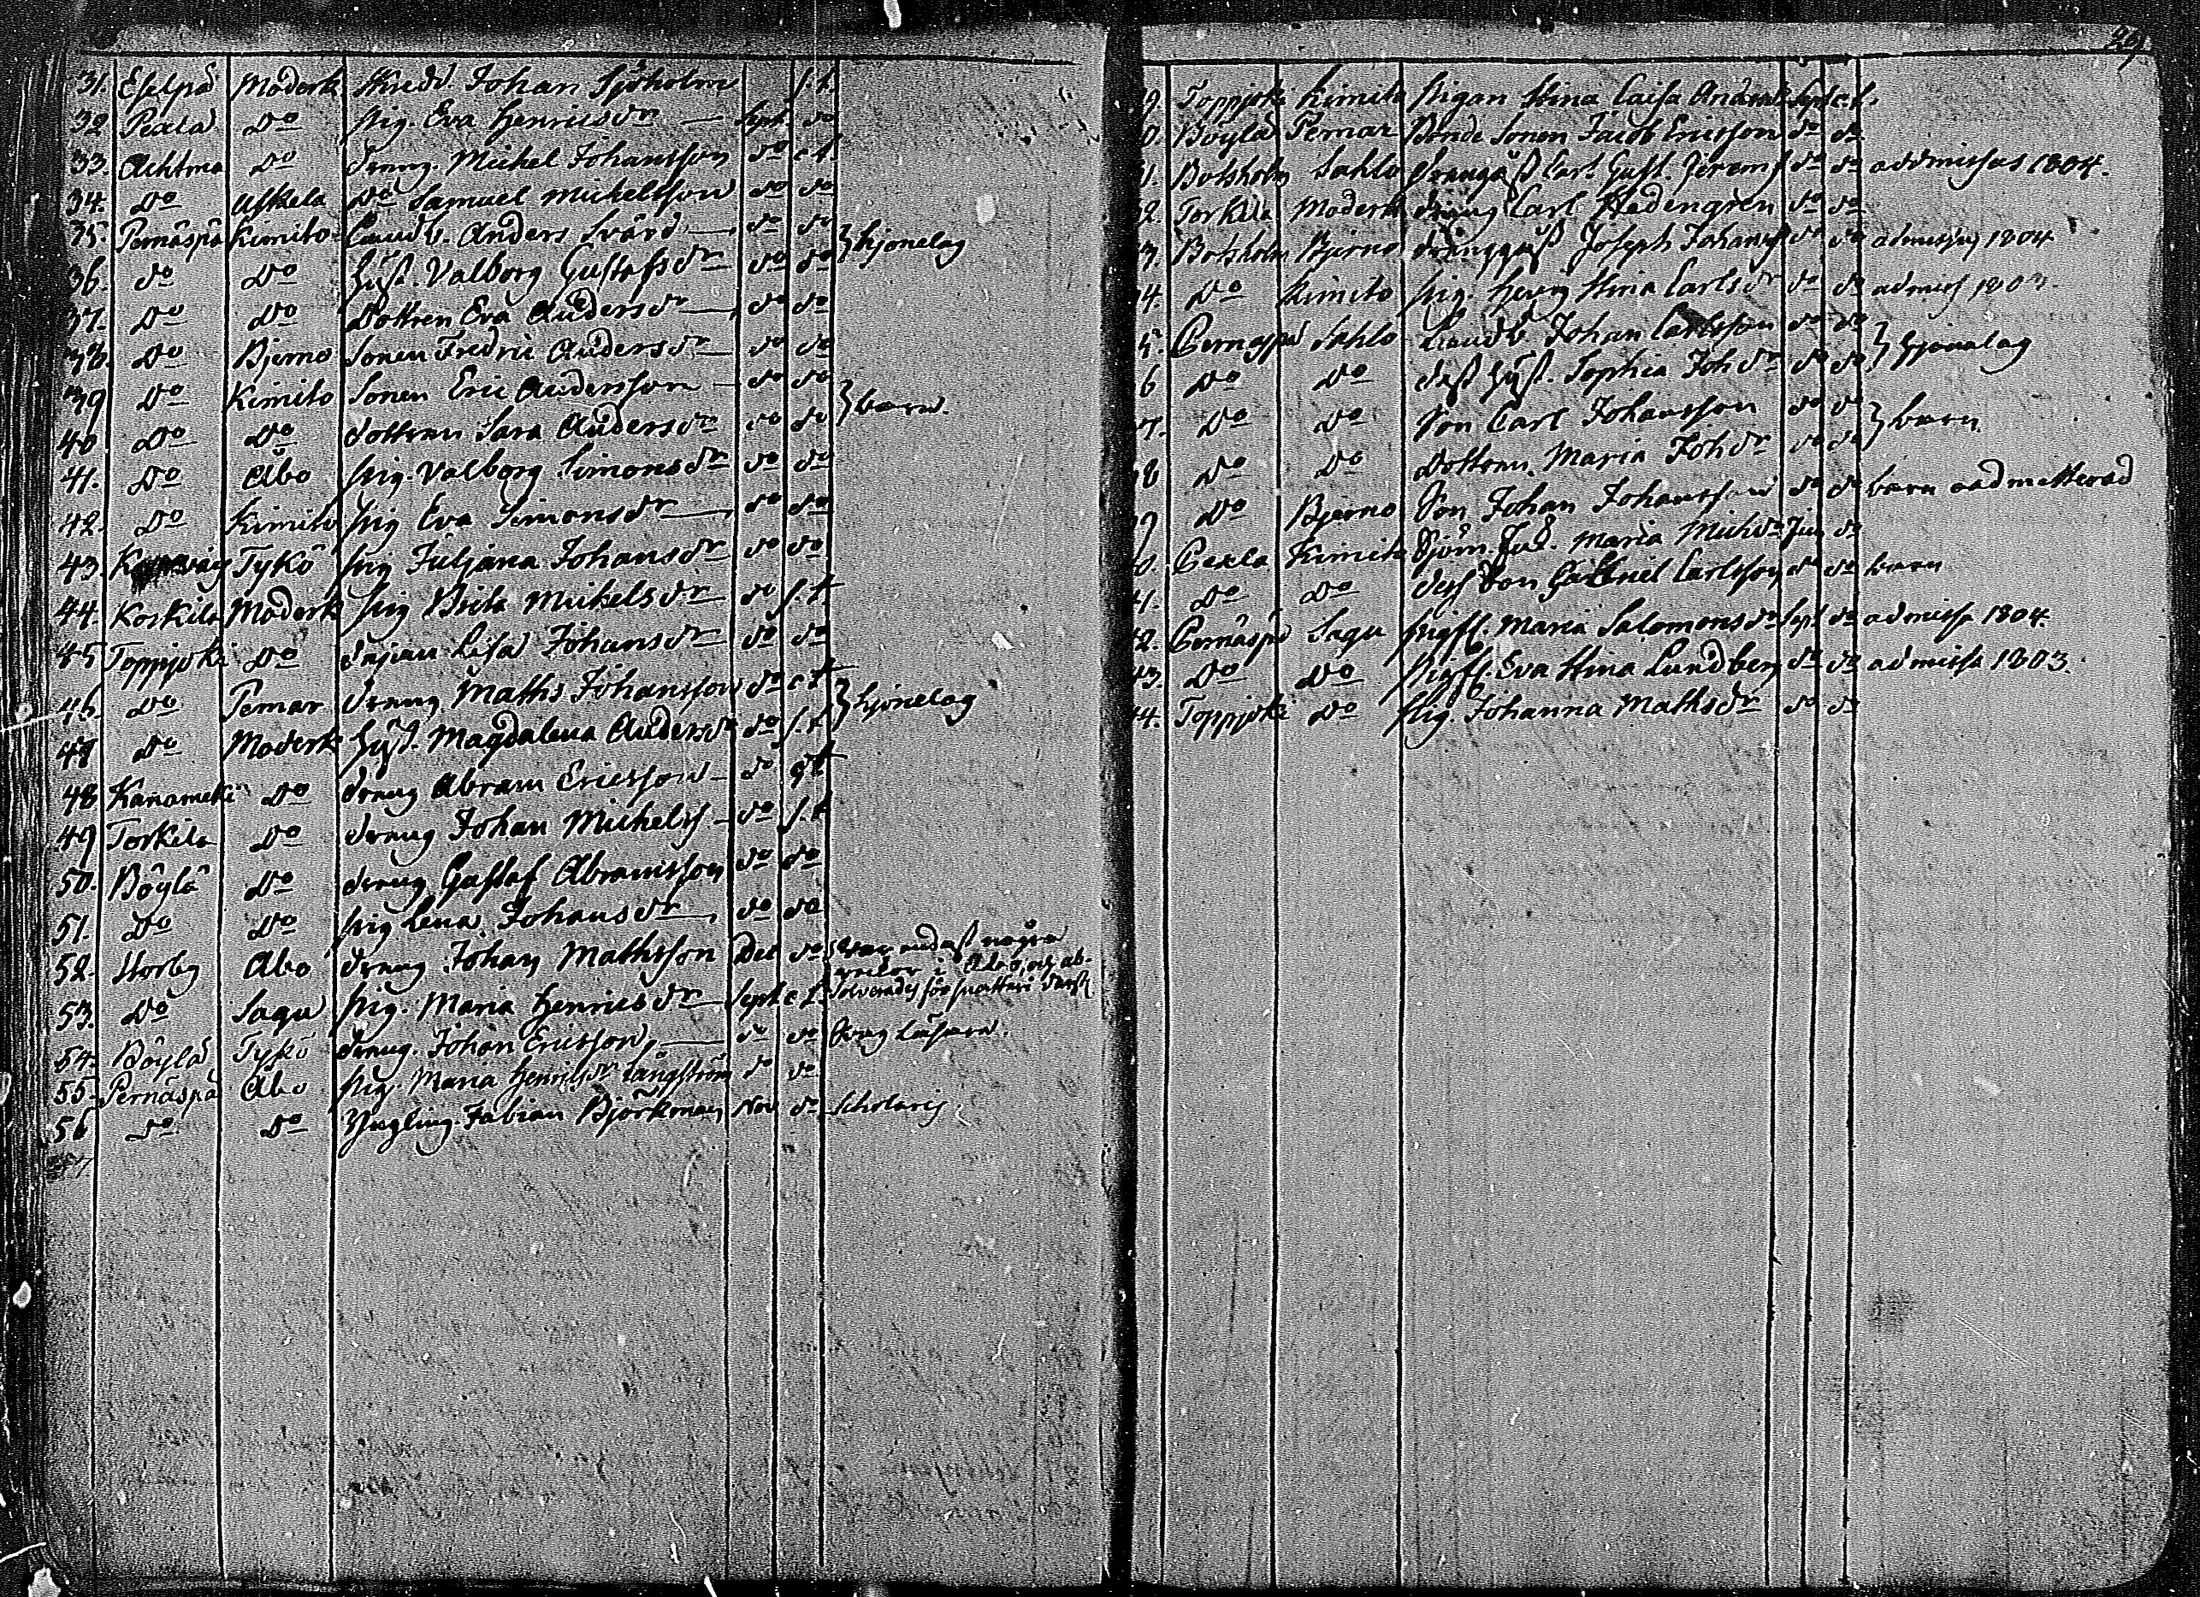 31. Eselpå Moderk Skredd. Johan Sjöholm s.t.
32 Pexla Do pig. Eva Henricsdr — Sept do
33. Achtma Do dräng. Michel Johansson do c.t.
34. Do Uskela Do Samuel Mickelsson do do
35. Pernäspå Kimito Landb. Anders Svärd — do do } hjonelag
36. do Do Hust. Valborg Gustafsdr do do
37. Do Do Dottren Eva Andersdr — do do
38. Do Bjerno Sonen Fredric Andersdr — do do
39 Do Kimito Sonen Eric Andersson — do do } barn.
40 Do Do dottren Sara Andersdr do do
41. Do Åbo pig. Valborg Simonsdr do do
42. Do Kimito pig Eva Simonsdr — do do
43. Tykö pig Juljana Johansdr do do
44. Koskila Moderk pig Brita Mickelsdr do s.t.
45 Toppjoki Do Lisa Johansdr do do
46. Do Pemar dräng Matths Johansson do c.t } hjonelag
47 Do Moderk Hust. Magdalena Andersdr do s.t.
48 Kanamäki Do dräng Abram Ericsson — do
49 Torkila Do dräng Johan Michelss. — do s.t
50. Böylä Do dräng Gustaf Abramsson do do
51. Do Do pig Lena Johansdr — do do
52. Storby Åbo dräng Johan Mathsson Dec do War endast några
veckor i Åbo, och ab-
solverades för
53. Do Sagu pig. Maria Henricsdr — Sept c.t.
54. Böylä Tykö dräng. Johan Ericsson, — do do
55. Pernäspå Åbo pig. Maria Henricsdr Långström do do
56 Do Do Yngling. Fabian Björkman Nov do Scholaris
57
29.
9. Toppjoki Kimito Pigan Stina Caisa Sept c.t.
0. Böylä Pemar Bonde Sonen Jacob Ericsson do do
1. Botsholm Sahlo Carl Gust. do do admissus 1804.
2. Torkila Moderk dräng Carl Hedengren do do
3. Botsholm Bjerno Joseph Johanss do do admissus 1804
4. Do Kimito pig. Hedvig Stina Carlsdr do do
5. Pernäspå Sahlo Landb. Johan Carlsson do do } hjonalag
6 Do Do dess Hust. Sophia Johdr do do
7. Do Do Son Carl Johansson do do } barn
8 Do Do Dottren Maria Johdr do do
9 Do Bjerno Son Johan Johansson do do barn
0. Pexla Kimito Maria Michdr do
1. Do Do dess Son Gabriel Carlsson do do barn
2. Pernäspå Sagu Maria Salomonsdr Sept do admissa 1804.
3. Do Do Eva Stina Lundberg do do admissa 1803.
4. Toppjoki Do Pig. Johanna Mathsdr do do